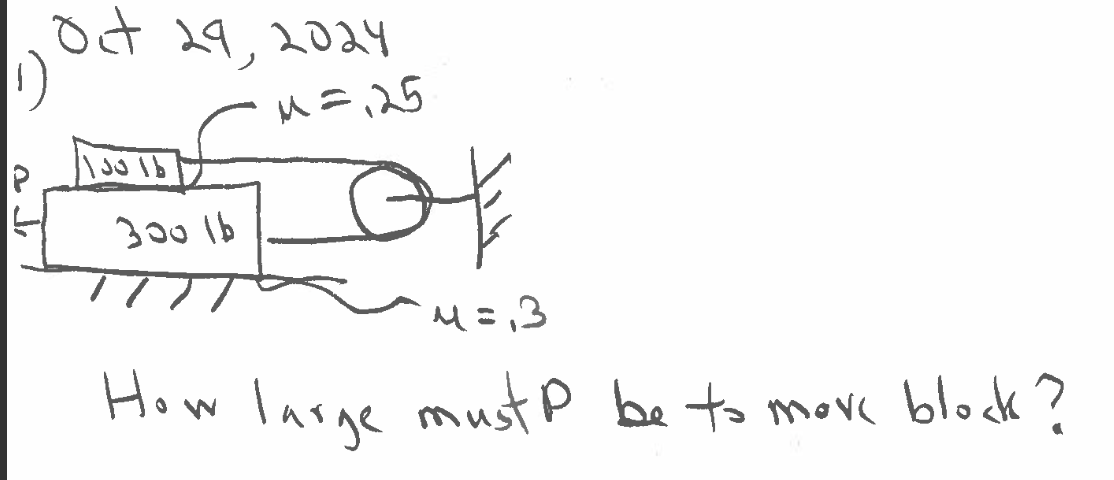 Oct 29, 2024
1)
μ = .25
P
100 lb
300 lb
μ = .3
How large must P be to move block?